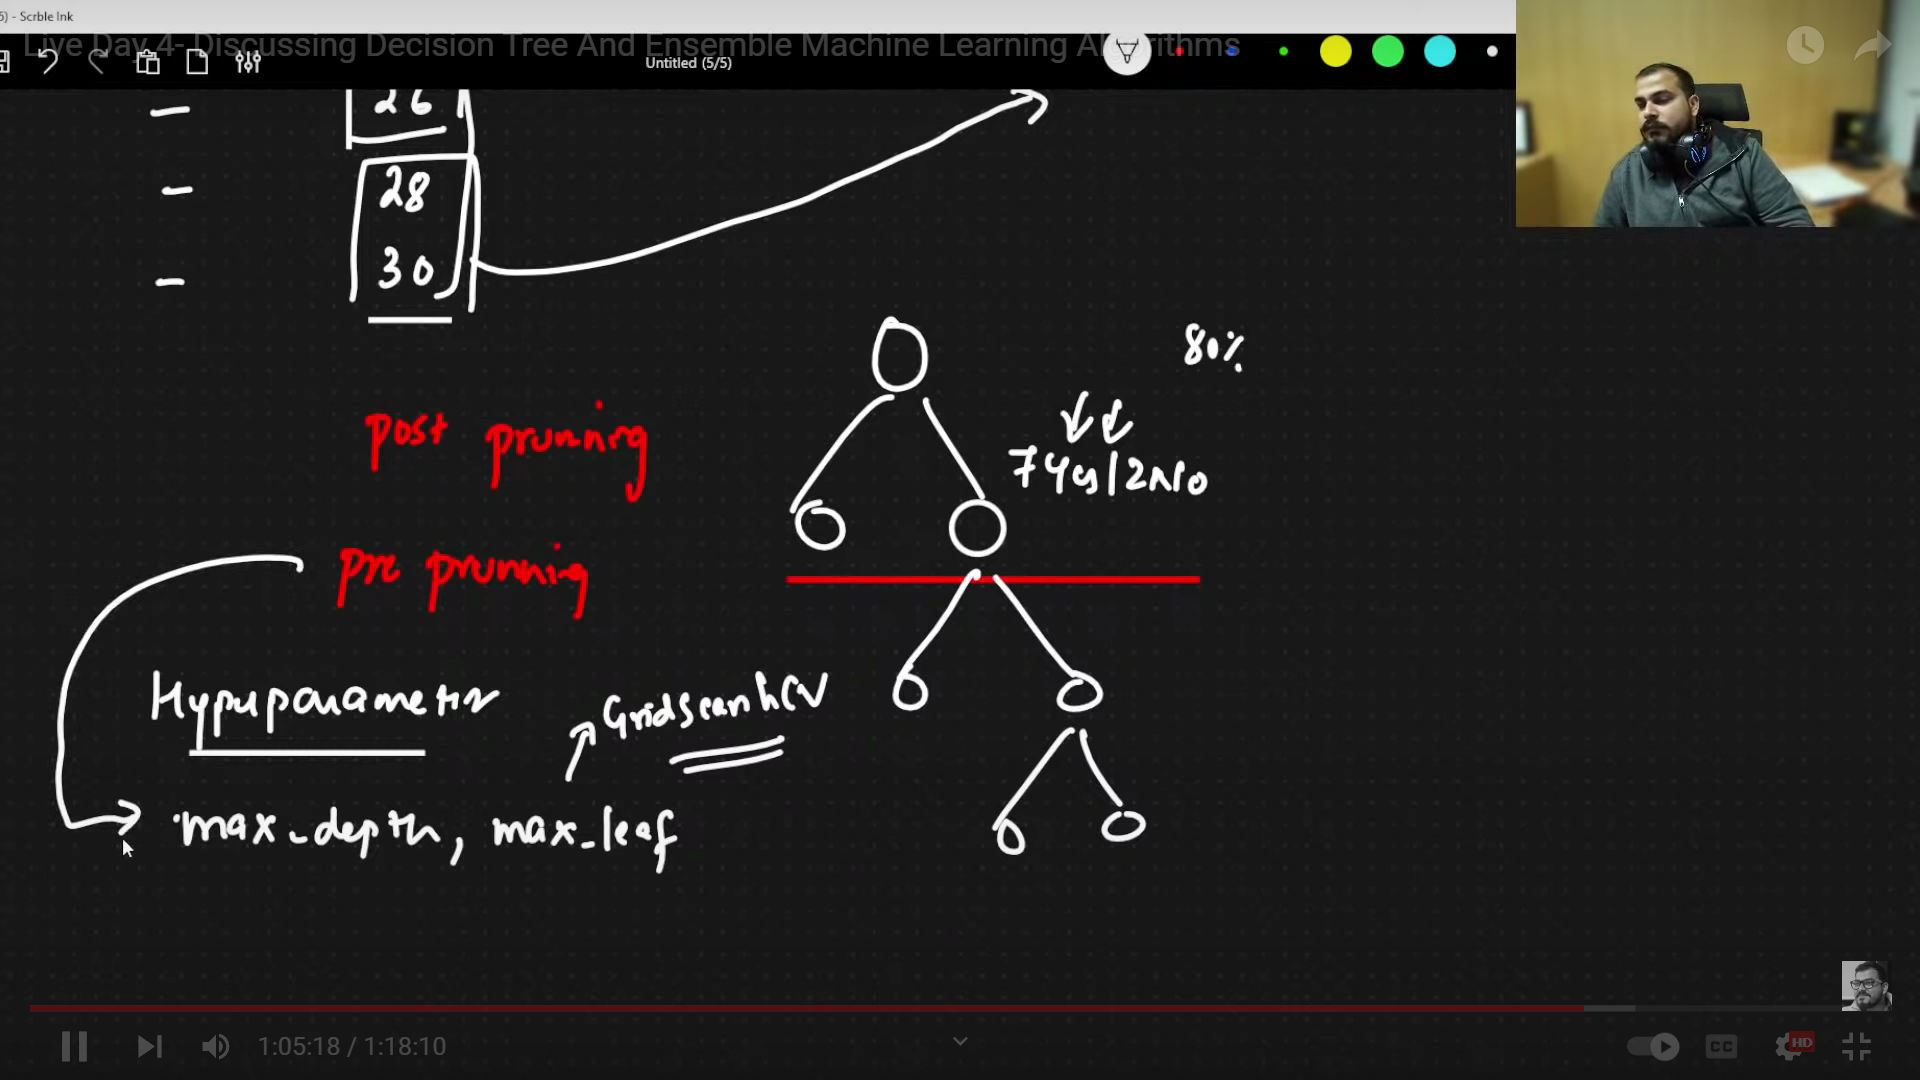 5) - Scrble Ink
Live Day 4- Discussing Decision Tree And Ensemble Machine Learning Algorithms
Untitled (5/5)
- 26
- 28
- 30
80%
post prunning
7 Yes/2 No
pre prunning
Hyperparameter
GridSearchCV
max_depth, max_leaf
1:05:18 / 1:18:10
CC
HD